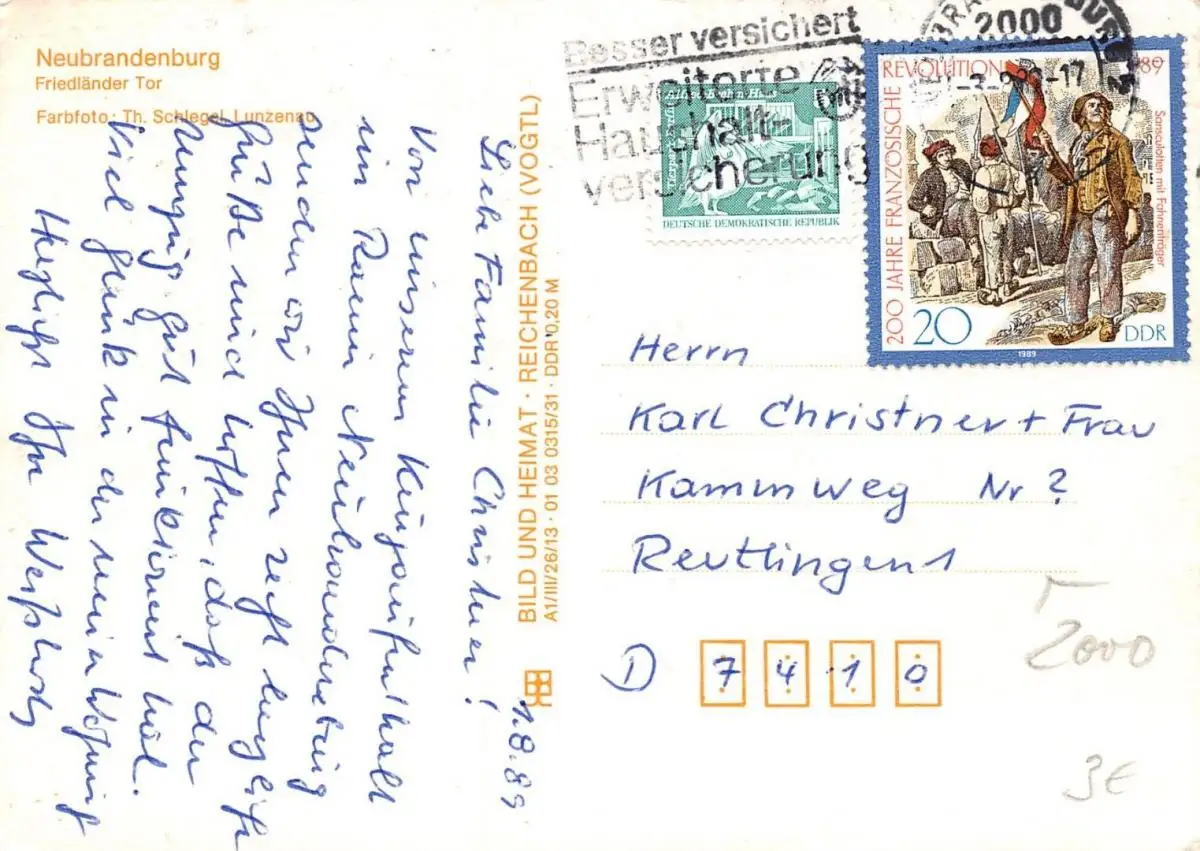 Neubrandenburg
Friedländer Tor
Farbfoto: Th. Schlegel, Lunzenau
1.8.89
Liebe Familie Christner!
Von unserem Kurzaufenthalt
im Raum Neubrandenburg
senden wir Ihnen recht herzliche
Grüße und hoffen, daß der
Umzug gut funktioniert hat.
Viel Glück in der neuen Wohnung
Herzlichst Ihre
BILD UND HEIMAT · REICHENBACH (VOGTL)
A1/III/26/13 · 01 03 0315/31 · DDR 0,20 M
Besser versichert
Erweiterte
Haushalt-
versicherung
2000
Alfred-Brehm-Haus
DEUTSCHE DEMOKRATISCHE REPUBLIK
200 JAHRE FRANZÖSISCHE
REVOLUTION 1789
Sansculotten mit Fahnenträger
20
DDR
1989
Herrn
Karl Christner + Frau
Kammweg Nr ?
Reutlingen 1
D 7410
2000
3€